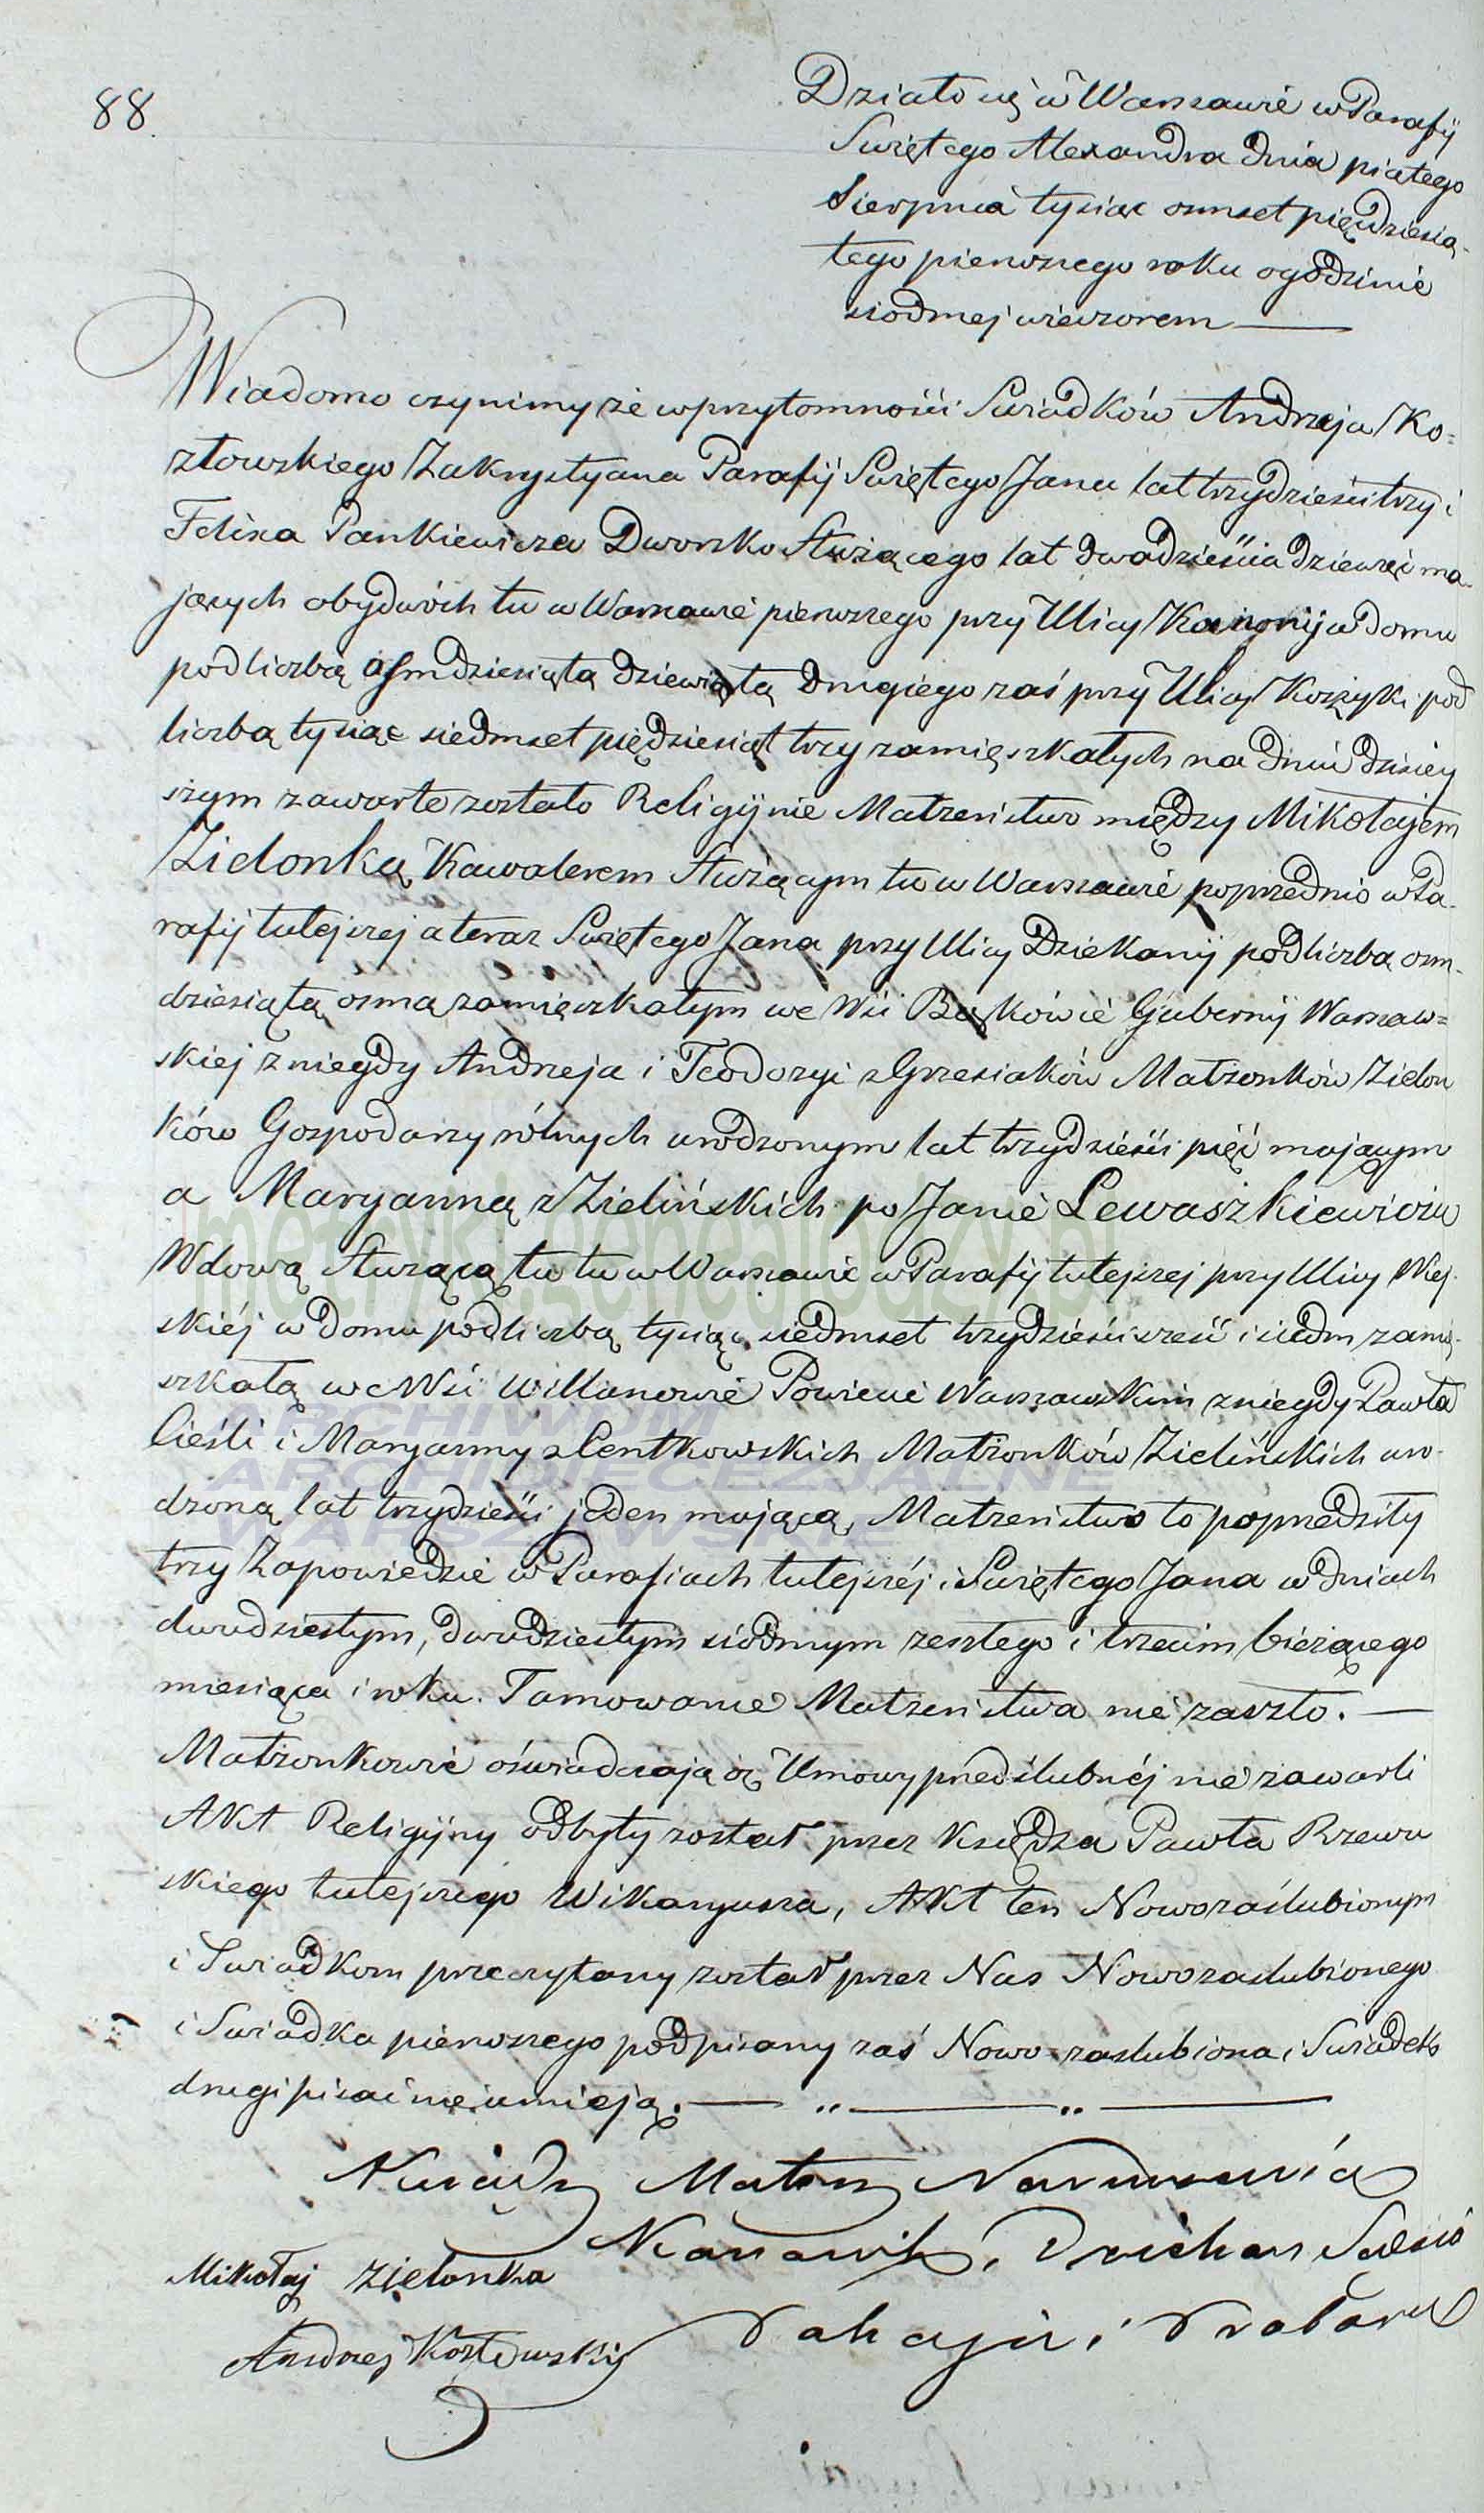 88.
Działo się w Warszawie w Parafij
Swiętego Alexandra dnia piątego
Sierpnia tysiąc osmset pięćdziesią-
tego pierwszego roku o godzinie
siodmej wieczorem
Wiadomo czynimy że w przytomności Swiadków Andrzeja Ko=
złowskiego Zakrystyana Parafij Swiętego Jana lat trzydzieści trzy i
Felixa Pankiewicza Dworsko Służącego lat dwadzieścia dziewięć ma-
jących obydwóch tu w Warszawie pierwszego przy Ulicy Kanonij w domu
pod liczbą osmdziesiątą dziewiątą drugiego zaś przy Ulicy Koszyki pod
liczbą tysiąc siedmset pięćdziesiąt trzy zamięszkałych na dniu dzisiey
szym zawarte zostało Religijnie Małżeństwo między Mikołajem
Zielonką Kawalerem Służącym tu w Warszawie poprzednio w Pa-
rafij tutejszej a teraz Swiętego Jana przy Ulicy Dziekanij pod liczbą osm-
dziesiątą osmą zamięszkałym we Wsi Bąkówie Gubernij Warszaw=
skiej z niegdy Andrzeja i Teodozyi z Grzesiaków Małżonków Zielon
ków Gospodarzy rólnych urodzonym lat trzydzieści pięć mającym
a Maryanną z Zielińskich po Janie Lewaszkiewiczu
Wdową Służącą tu tu w Warszawie w Parafij tutejszej przy Ulicy Wiej-
skiéj w domu pod liczbą tysiąc siedmset trzydzieści sześć i siedm zamię-
szkałą we Wsi Willanowie Powiecie Warszawskim z niegdy Pawła
Cieśli i Maryanny z Centkowskich Małżonków Zielińskich uro-
dzoną lat trzydzieści jeden mającą, Małżeństwo to poprzedziły
trzy Zapowiedzie w Parafiach tutejszéj i Swiętego Jana w dniach
dwudziestym, dwudziestym siódmym zeszłego i trzecim bieżącego
miesiąca i roku. Tamowanie Małżeństwa nie zaszło.
Małżonkowie oświadczają iż Umowy przedślubnéj nie zawarli
Akt Religijny odbyty został przez Księdza Pawła Rzewu
skiego tutejszego Wikaryusza, Akt ten Nowozaślubionym
i Swiadkom przeczytany został przez Nas Nowozaslubionego
i Swiadka pierwszego podpisany zaś Nowo-zaslubiona i Swiadek
drugi pisać nie umieją.
Ksiądz Mateusz
Kanonik, Dziekan
Mikołaj Zielonka
i Proboszcz
Andrzej Kozłowski
metryki.genealodzy.pl
ARCHIWUM
ARCHIDIECEZJALNE
WARSZAWSKIE